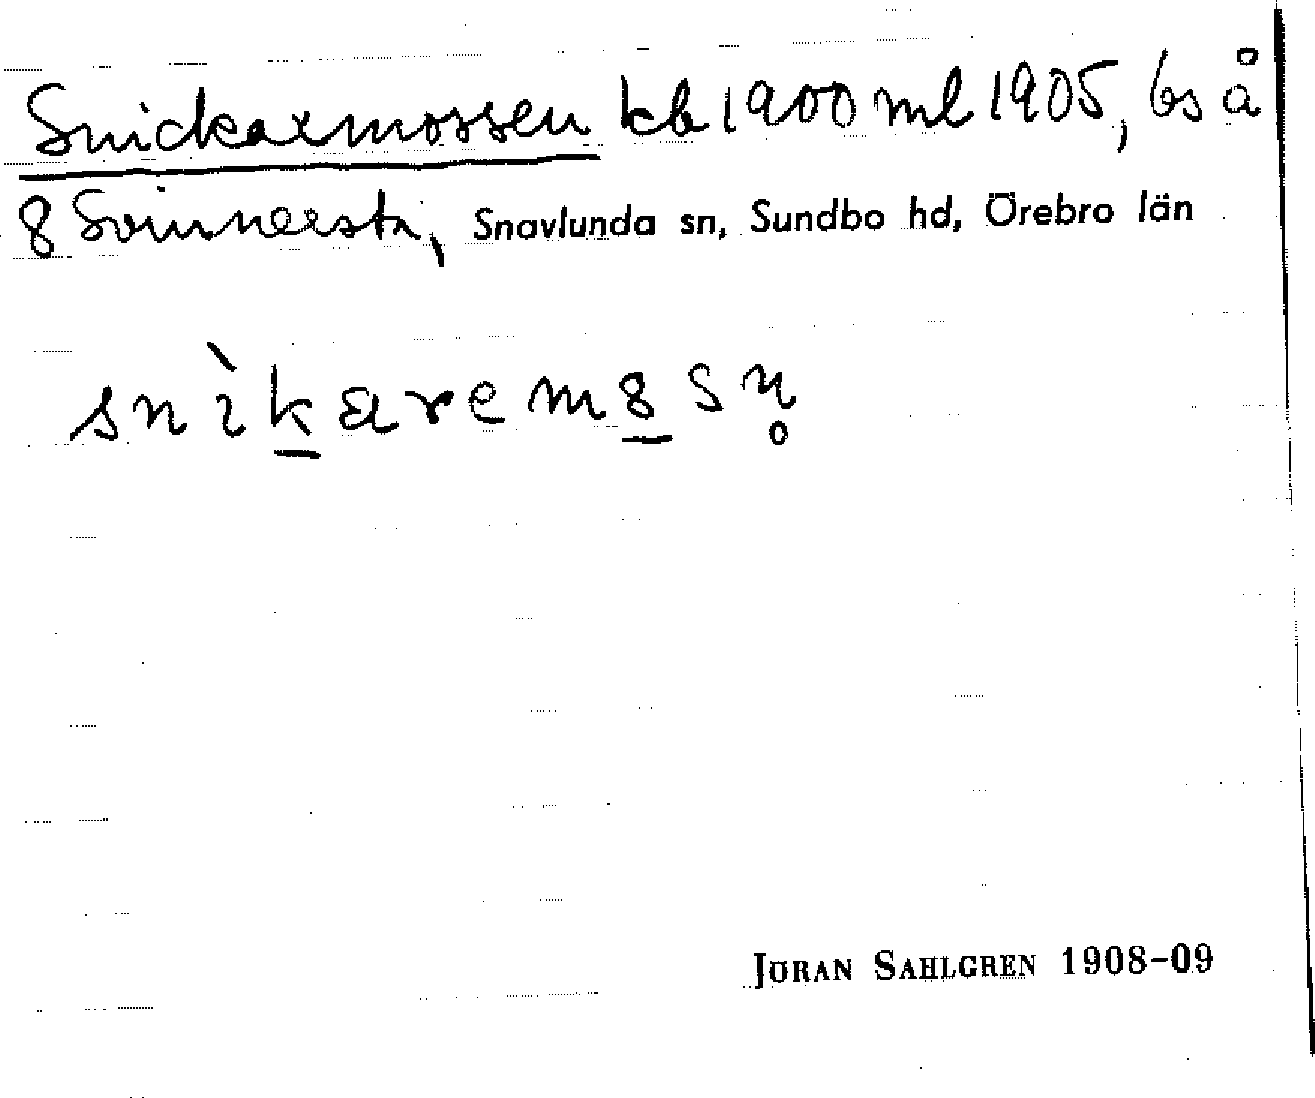 Snickarmossen kb 1900 ml 1905, bs å
8 Svinnersta, Snavlunda sn, Sundbo hd, Örebro län
snìkarem8sn̥
JÖRAN SAHLGREN 1908-09